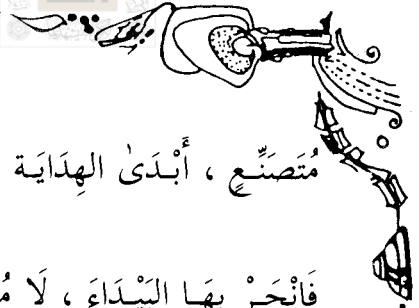 مُتَصَنِّعٍ ، أَبْدَىٰ الهِدَايَة
فَانْحَرْ بِهَا البَيْدَاءَ ، لَا